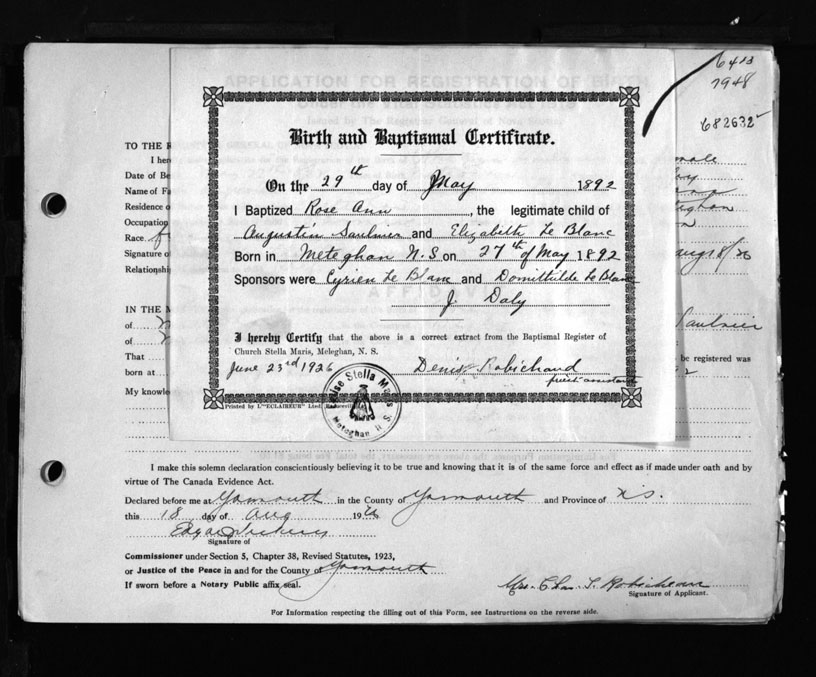 6413
7948
682632
APPLICATION FOR REGISTRATION OF BIRTH
Issued by The Registrar General of Nova Scotia
TO THE R
I her
Date of Be
Name of Fa
Residence o
Occupation
Race
Signature o
Relationshi
male
Aug 18/26
Birth and Baptismal Certificate.
On the 29th day of May 1892
I Baptized Rose Ann, the legitimate child of
Augustin Saulnier and Elizabeth Le Blanc
Born in Meteghan N.S on 27th of May 1892
Sponsors were Cyrien Le Blanc and Domithilde Le Blanc
J. Daly
I hereby Certify that the above is a correct extract from the Baptismal Register of
Church Stella Maris, Meteghan, N. S.
June 23rd 1926 Denis Robichaud
priest assistant
Printed by L'"ECLAIREUR" Lted,
Eglise Stella Maris
Meteghan N. S.
IN THE M
of
of
That
born at
My knowle
Saulnier
be registered was
I make this solemn declaration conscientiously believing it to be true and knowing that it is of the same force and effect as if made under oath and by
virtue of The Canada Evidence Act.
Declared before me at Yarmouth in the County of Yarmouth and Province of N.S.
this 18 day of Aug 1926
Edgar
Signature of
Commissioner under Section 5, Chapter 38, Revised Statutes, 1923,
or Justice of the Peace in and for the County of Yarmouth
If sworn before a Notary Public affix seal.
Mrs. Chas. S. Robicheau
Signature of Applicant.
For Information respecting the filling out of this Form, see Instructions on the reverse side.